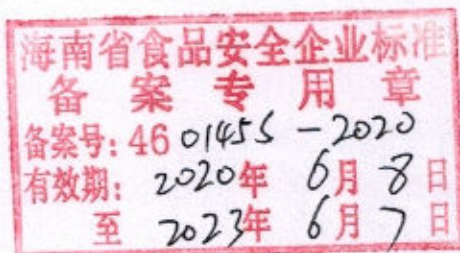 海南省食品安全企业标准
备案专用章
备案号: 46 0145S-2020
有效期: 2020年 6月 8日
至 2023年 6月 7日